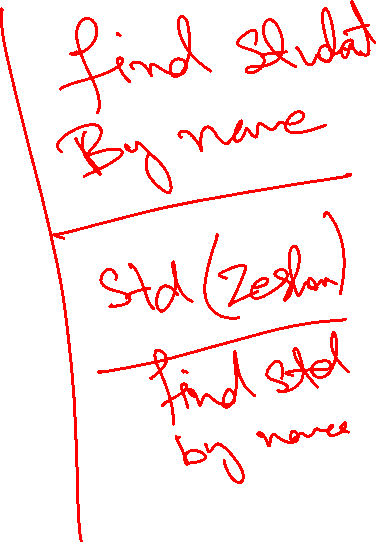 find Student
By name
Std (Zeshan)
find std
by name